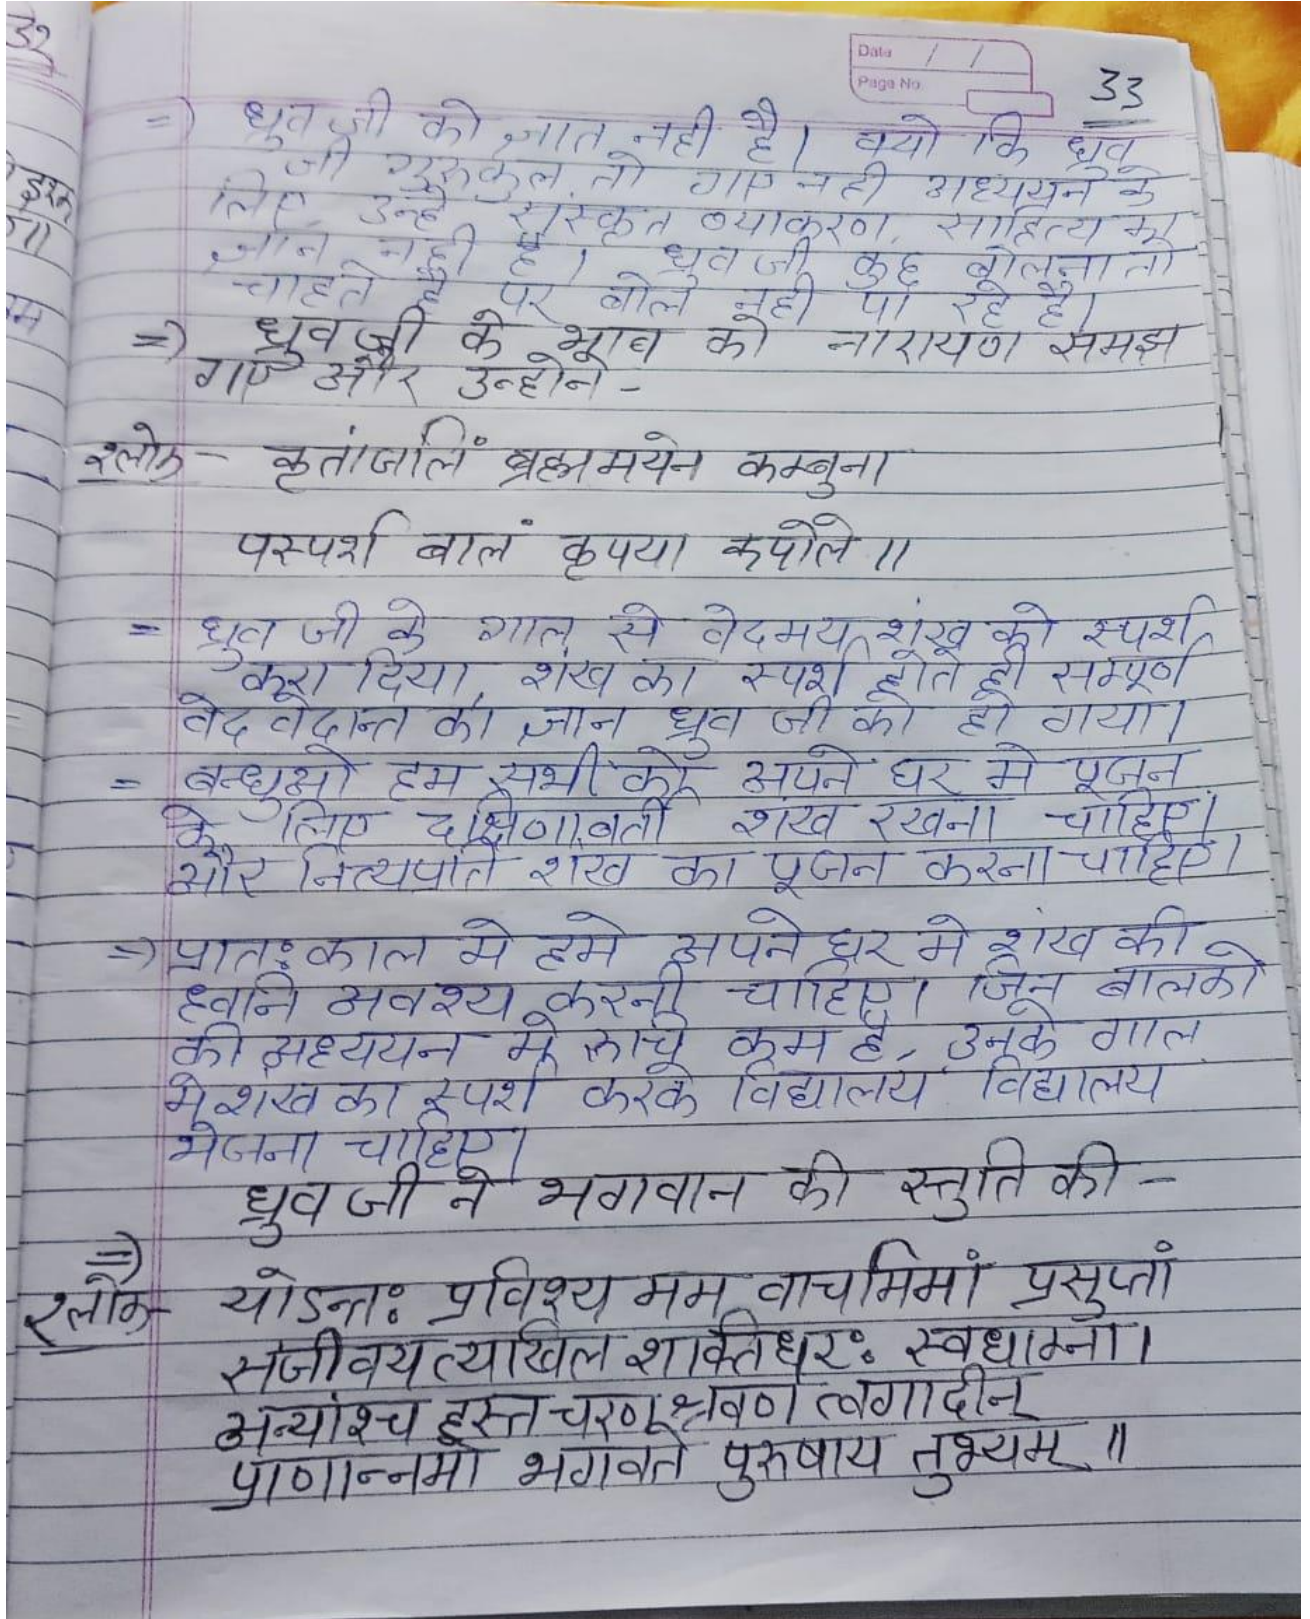 32
Date / /
Page No.
33
=) ध्रुव जी को ज्ञात नही है। क्यो कि ध्रुव
जी गुरुकुल तो गए नही अध्ययन के
लिए उन्हे संस्कृत व्याकरण, साहित्य का
ज्ञान नही है। ध्रुव जी कुछ बोलना तो
चाहते है पर बोल नही पा रहे है।
=) ध्रुव जी के भाव को नारायण समझ
गए और उन्होने -
श्लोक - कृतांजलिं ब्रह्ममयेन कम्बुना
पस्पर्श बालं कृपया कपोले॥
= ध्रुव जी के गाल से वेदमय शंख को स्पर्श
करा दिया, शंख का स्पर्श होते ही सम्पूर्ण
वेद वेदान्त का ज्ञान ध्रुव जी को हो गया।
= बन्धुओ हम सभी को अपने घर मे पूजन
के लिए दक्षिणावर्ती शंख रखना चाहिए।
और नित्यप्रति शंख का पूजन करना चाहिए।
=) प्रातःकाल मे हमे अपने घर मे शंख की
ध्वनि अवश्य करनी चाहिए। जिन बालको
की अध्ययन मे रुचि कम है, उनके गाल
मे शंख का स्पर्श करके विद्यालय विद्यालय
भेजना चाहिए।
ध्रुव जी ने भगवान की स्तुति की -
=)
श्लोक - योऽन्तः प्रविश्य मम वाचमिमां प्रसुप्तां
संजीवयत्यखिल शक्तिधरः स्वधाम्ना।
अन्यांश्च हस्त चरण श्रवण त्वगादीन्
प्राणान्नमो भगवते पुरुषाय तुभ्यम्॥